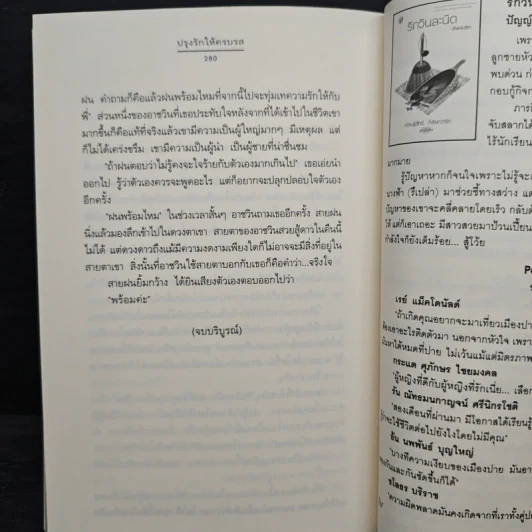 ปรุงรักให้ครบรส
280
ฝน คำถามก็คือแล้วฝนพร้อมไหมที่จากนี้ไปจะทุ่มเทความรักให้กับ
พี่" ส่วนหนึ่งของอาชวินที่เธอประทับใจหลังจากที่ได้เข้าไปในชีวิตเขา
มากขึ้นก็คือแท้ที่จริงแล้วเขามีความเป็นผู้ใหญ่มากๆ มีเหตุผล แต่
ก็ไม่ได้เคร่งขรึม เขามีความเป็นผู้นำ เป็นผู้ชายที่น่าชื่นชม
"ถ้าฝนตอบว่าไม่รู้คงจะใจร้ายกับตัวเองมากเกินไป" เธอเอ่ยนำ
ออกไป รู้ว่าตัวเองควรจะพูดอะไร แต่ก็อยากจะปลุกปลอบใจตัวเอง
อีกครั้ง
"ฝนพร้อมไหม" ในช่วงเวลาสั้นๆ อาชวินถามเธออีกครั้ง สายฝน
นิ่งแล้วมองลึกเข้าไปในดวงตาเขา สายตาของอาชวินสวยสู้ดาวในคืนนี้
ไม่ได้ แต่ดวงดาวถึงแม้มีความงดงามเพียงใดก็ไม่อาจจะมีสิ่งที่อยู่ใน
สายตาเขา สิ่งนั้นที่อาชวินใช้สายตาบอกกับเธอก็คือคำว่า...จริงใจ
สายฝนยิ้มกว้าง ได้ยินเสียงตัวเองตอบออกไปว่า
"พร้อมค่ะ"
(จบบริบูรณ์)
รักวันละนิด
รักวันละ
ปัญญ์
เพรา
ลูกชายหัว
พบด่วน ก่
กอบกู้กิจก
ภารกิ
จับสลากได้
ไร้นักเรียน
มากมาย
รู้ปัญหาหากกิจนใจเพราะไม่รู้จะเ
นางฟ้า (รึเปล่า) มาช่วยชี้ทางสว่าง แต่
ปัญหาของเขาจะคลี่คลายโดยเร็ว กลับดั
ให้ แต่ก็เอาเถอะ มีสาวสวยมาป่วนเปี้ยน
กำลังใจก็ยังเต็มร้อย... สู้โว้ย
เรย์ แม็คโดนัลด์
"ถ้าเกิดคุณอยากจะมาเที่ยวเมืองปา
ต้องเอาอะไรติดตัวมา นอกจากหัวใจ เพรา
มันหาได้หมดที่ปาย ไม่เว้นแม้แต่มิตรภาพ
กระแต ศุภักษร ไชยมงคล
"ผู้หญิงที่ดีกับผู้หญิงที่รักเนี่ย... เลือก
รัน ณัทธมนกาญจน์ ศรีนิกรโชติ
"สองเดือนที่ผ่านมา มีโอกาสได้เรียนรู้
รู้ว่าจะใช้ชีวิตต่อไปยังไงโดยไม่มีคุณ"
อั้น นพพันธ์ บุญใหญ่
"บางทีความเงียบของเมืองปาย มันอา
องกันและกันชัดขึ้นก็ได้"
รโดธร บริราช
"ความผิดพลาดมันคงเกิดจากที่เราทั้งคู่ปล